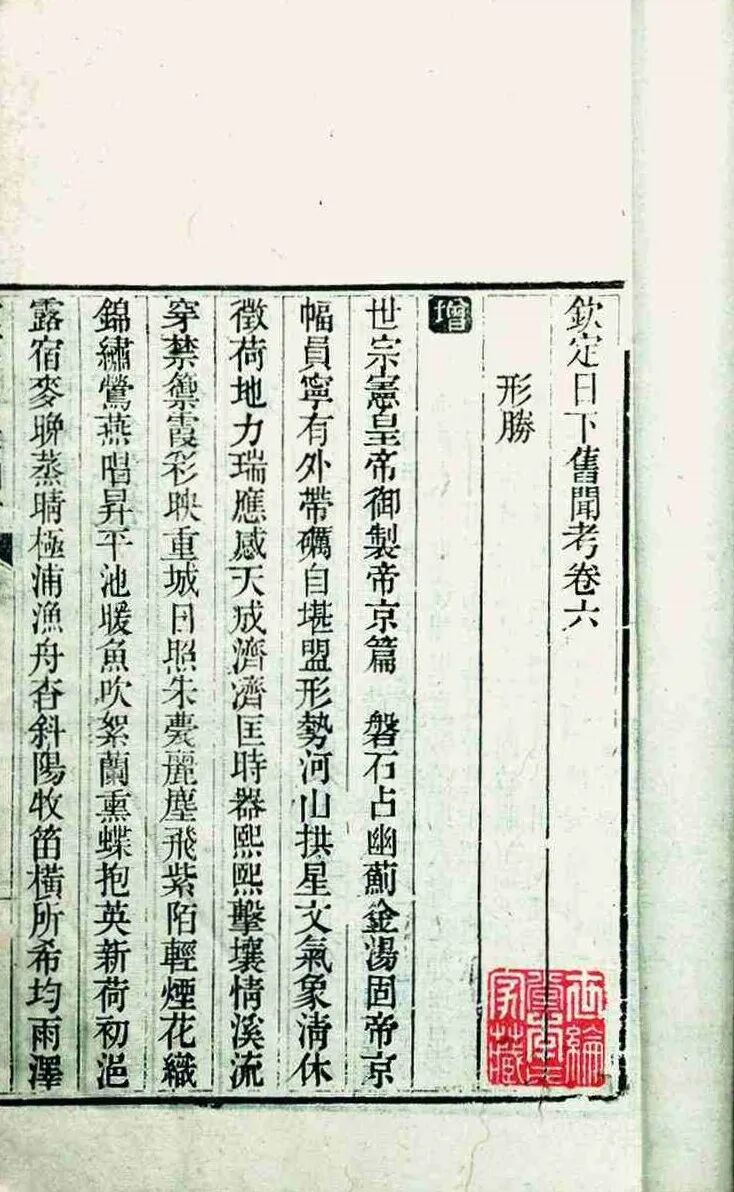 欽定日下舊聞考卷六
形勝
增
世宗憲皇帝御製帝京篇 磐石占幽薊金湯固帝京
幅員寧有外帶礪自堪盟形勢河山拱星文氣象淸休
徵荷地力瑞應感天成濟濟匡時器熙熙擊壤情溪流
穿禁籞霞彩映重城日照朱甍麗塵飛紫陌輕煙花織
錦繡鶯燕唱昇平池暖魚吹絮蘭熏蝶抱英新荷初浥
露宿麥晚蒸晴極浦漁舟杳斜陽牧笛橫所希均雨澤